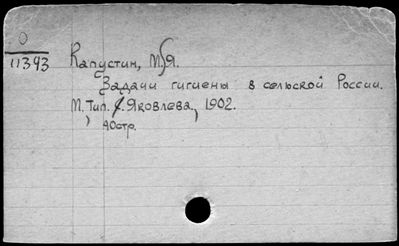 О
11393
Капустин, М.Я.
Задачи гигиены в сельской России.
М., Тип. Яковлева, 1902.
40стр.